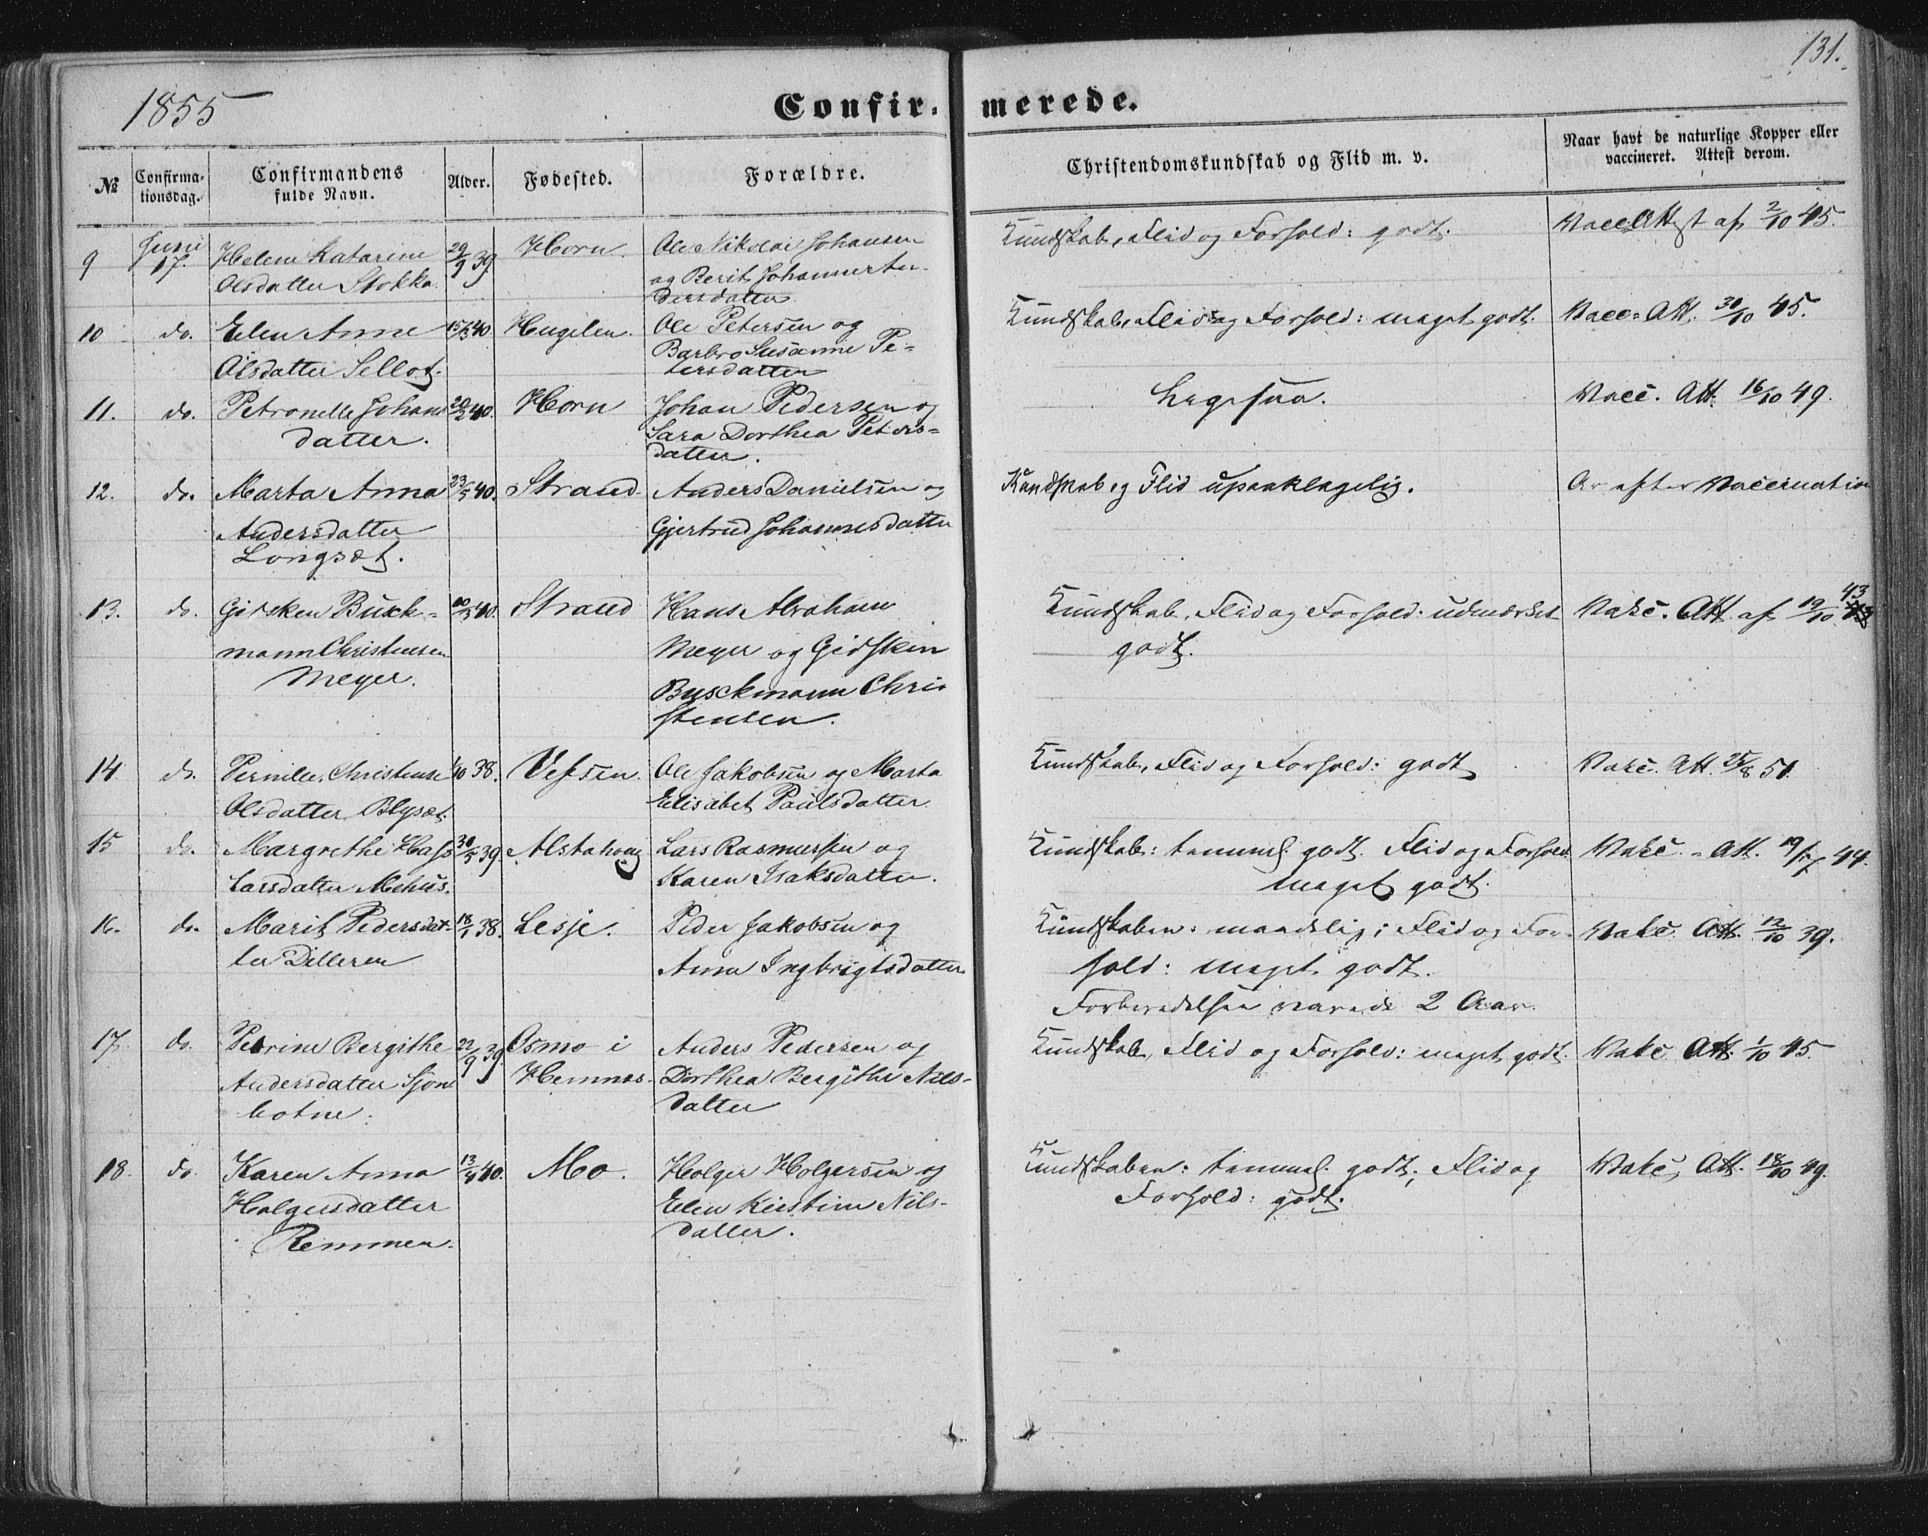 131.
1855
Confir- merede.
№
Confirma-
tionsdag.
Confirmandens
fulde Navn.
Alder.
Fødested.
Forældre.
Christendomskundskab og Flid m. v.
Naar havt de naturlige Kopper eller
vaccineret. Attest derom.
9 Juni 17. Helene Katarine 29/9 39 Horn. Ole Nikolai Johansen Kundskab, Flid og Forhold: godt. Vacc Attst af 2/10 45.
Olsdatter Stokka og Berit
dersdatter
10 do. Elen Anne 15/3 40 Hugelen. Ole Petersen og Kundskab, Flid og Forhold: meget godt. Vacc. Att. 30/10 45.
Olsdatter Sellot. Barbro Susanne Pe-
tersdatter
11. do. Petronelle Johans 20/2 40. Horn Johan Pedersen og Ligesaa. Vacc. Att. 16/10 49.
datter. Sara Dorthea Peters-
datter.
12. do. Marta Anna 23/5 40. Strand Anders Danielsen og Kundskab og Flid upaaklagelig. Ar efter Vaccination
Andersdatter Gjertrud Johannesdatter
Longset.
13. do. Gidsken Buck- 40. Strand Hans Abraham Kundskab, Flid og Forhold: udmærket Vakc. Att. af 19/10 43
mann Christensen Meyer og Gidsken godt.
Meyer. Busckmann Chri-
stensen.
14 do. Pernille Christense 1/10 38. Vefsen. Ole Jakobsen og Marta Kundskab, Flid og Forhold: godt Vakc. Att. 25/8 51.
Olsdatter Blyset. Elisabet Paulsdatter
15 do. Margrethe Hass 30/5 39. Alstahoug Lars Rasmussen og Kundskab: temmel. godt. Flid og Forhold Vakc. Att. 19/7 44.
Larsdatter Mehus. Karen Isaksdatter. meget godt.
16. do. Marit Pedersdat- 18/1 38. Lesje. Peder Jakobsen og Kundskaben: maadelig; Flid og For- Vakc. Att. 12/10 39.
ter Dilleren Anna Ingbrigtsdatter hold: meget godt.
Forberedelsen varede 2 Aar.
17. do. Petrine Bergithe 22/9 39. Osmo i Anders Pedersen og Kundskab, Flid og Forhold: meget godt. Vakc. Att. 1/10 45.
Andersdatter Sjon- Hemnes. Dorthea Bergithe Nils-
botne. datter
18. do. Karen Anna 13/4 40. Mo. Holger Holgersen og Kundskaben: temmel. godt; Flid og Vakc, Att. 18/10 49.
Holgersdatter Elen Kirstine Nils- Forhold: godt.
Remmen. datter.